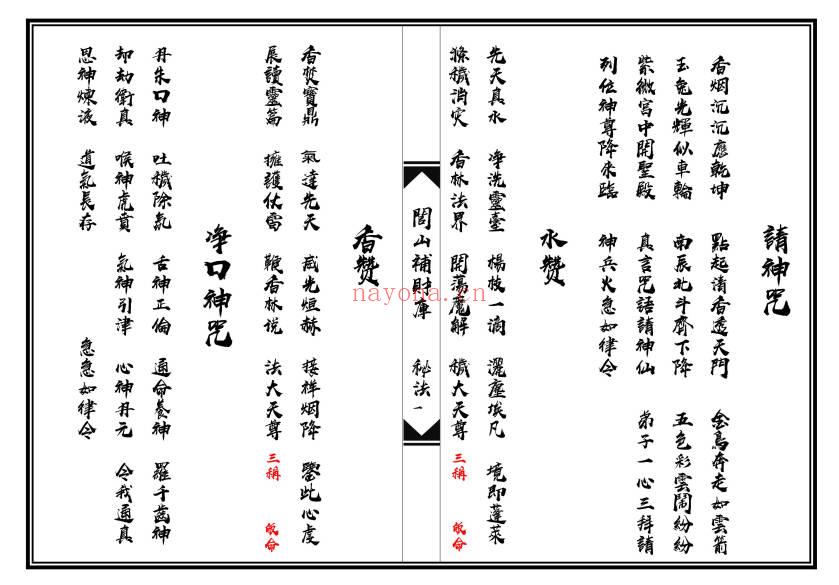 請神咒
香烟沉沉應乾坤 點起清香透天門 金鳥奔走如雲箭
玉兔光輝似車輪 南辰北斗齊下降 五色彩雲鬧紛紛
紫微宮中開聖殿 真言咒語請神仙 弟子一心三拜請
列位神尊降來臨 神兵火急如律令
水贊
先天真水 净洗靈臺 楊枝一滴 灑塵埃凡 境即蓬萊
滌穢消灾 香林法界 開蕩魔解 穢大天尊 三稱 皈命
閭山補財庫 秘法一
香贊
香焚寶鼎 氣達先天 威光烜赫 接祥烟降 鑒此心虔
展讀靈篇 擁護仗雷 鞭香林說 法大天尊 三稱 皈命
净口神咒
丹朱口神 吐穢除氣 舌神正倫 通命養神 羅千齒神
却劫衛真 喉神虎賁 氣神引津 心神丹元 令我通真
思神煉液 道氣長存 急急如律令
nayona.cn